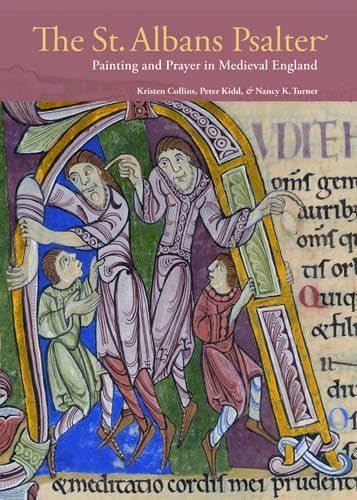 The St. Albans Psalter
Painting and Prayer in Medieval England
Kristen Collins, Peter Kidd, & Nancy K. Turner
UDITE h
om̅s gen
auribu
om̅s qu
tis orb
Quiq
& fili
pru
& meditatio cordis mei prudenti